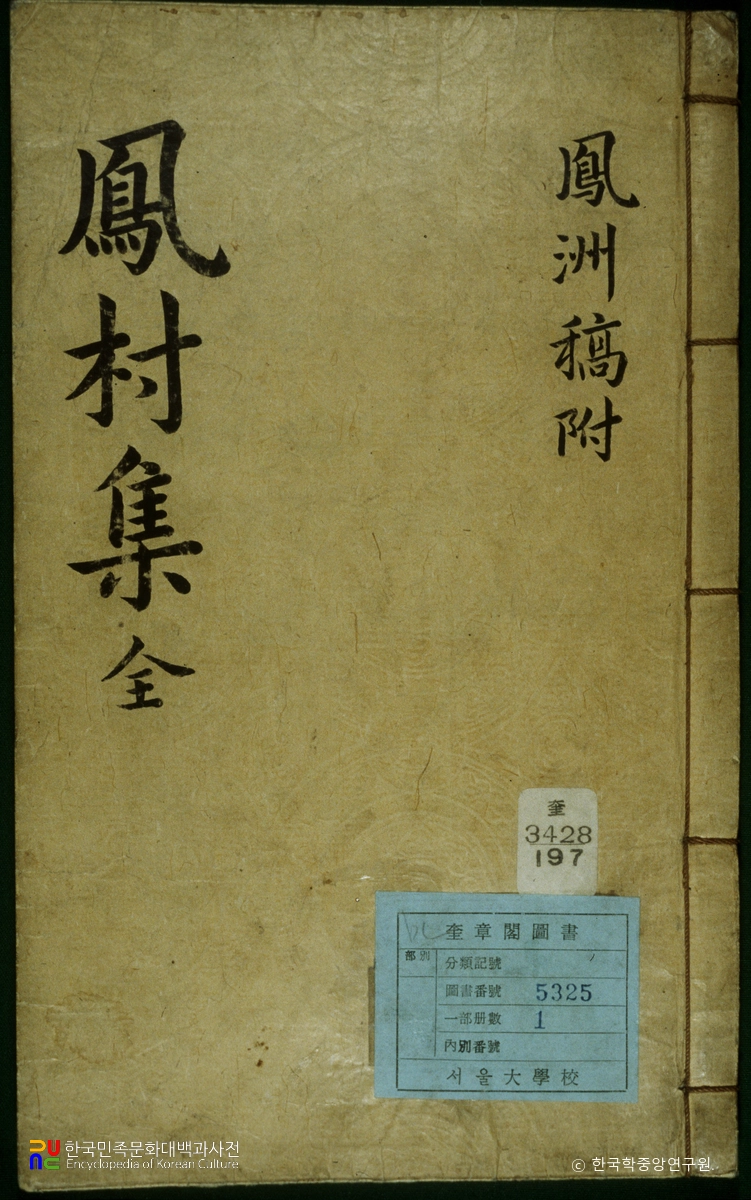 鳳洲稿附
鳳村集全
奎
3428
197
奎章閣圖書
部別
分類記號
圖書番號 5325
一部册數 1
內別番號
서울大學校
한국민족문화대백과사전
Encyclopedia of Korean Culture
© 한국학중앙연구원